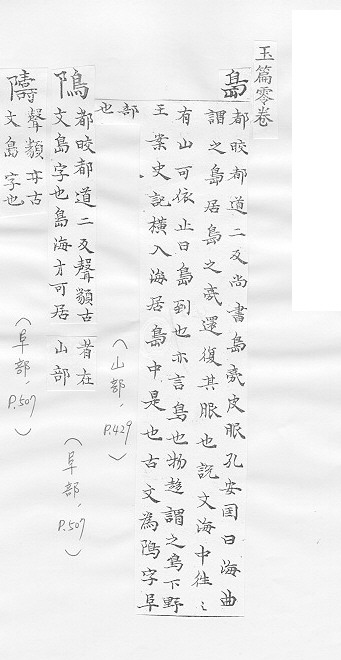 玉篇零卷
島
都晈都道二反尚書島夷皮服孔安国曰海曲
謂之島居島之夷還復其服也說文海中往〻
有山可依止曰島到也亦言鳥也物赴謂之鳥下野
王案史記橫入海居島中是也古文為隝字阜
部也
(山部, P.429)
隝
都晈都道二反聲類古
文島字也島海中可居
者在山部
(阜部, P.507)
隯
聲類亦古
文島字也
(阜部, P.507)